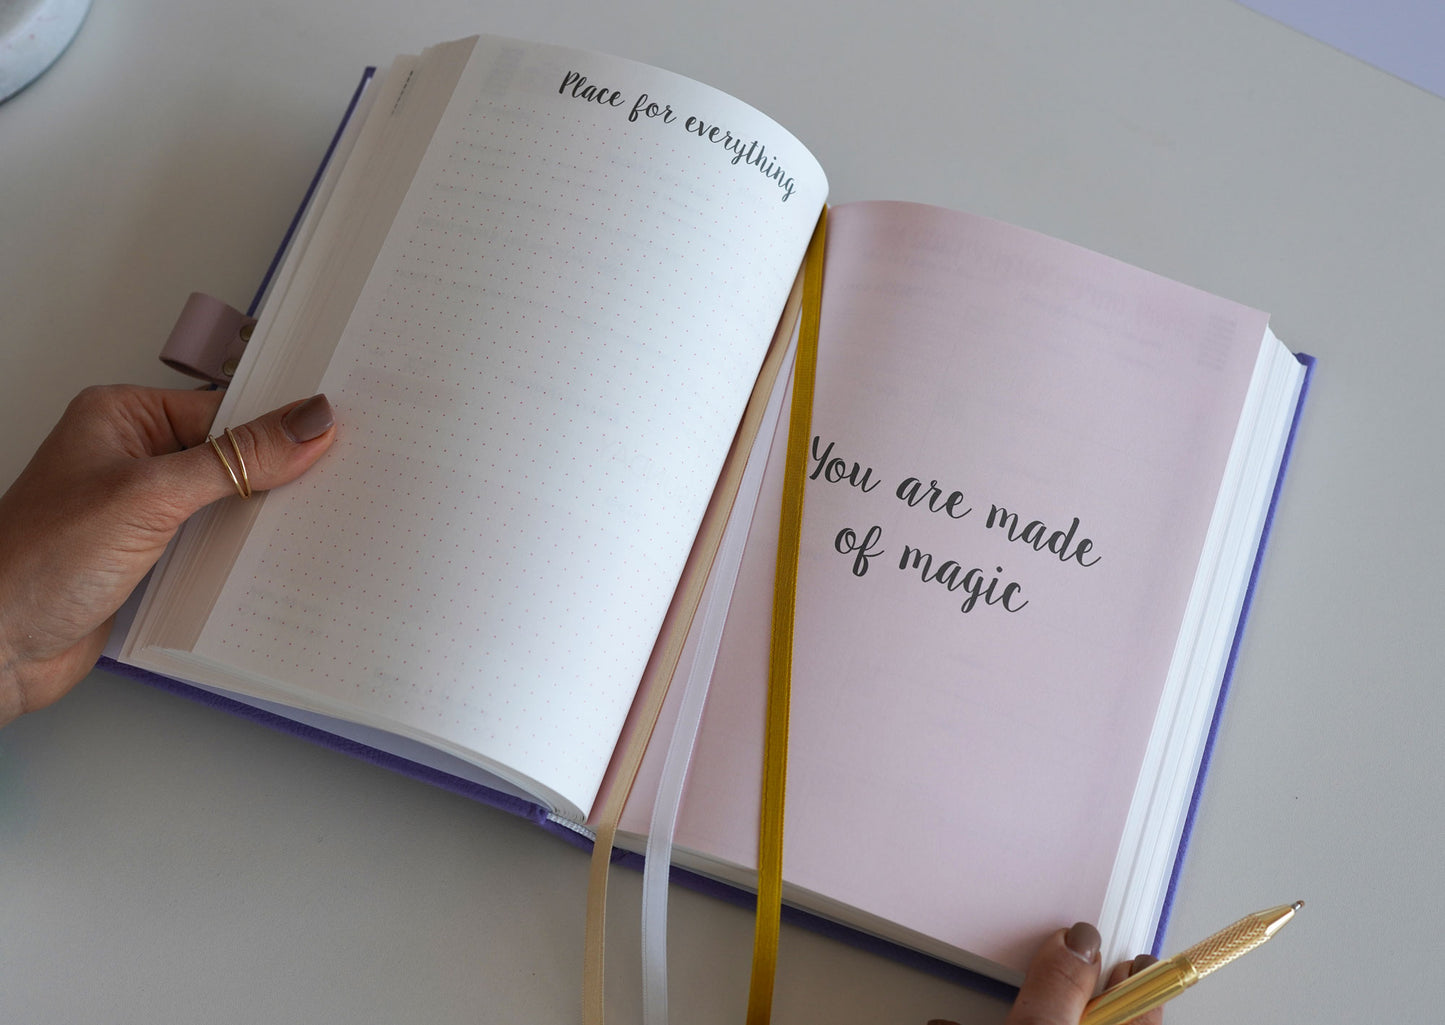 Place for everything
You are made
of magic